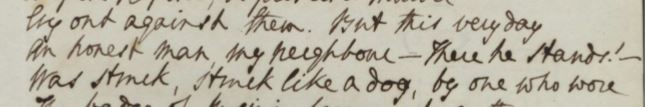 Cry out against them. But this very day
An honest man, my neighbour – there he stands! –
Was struck, struck like a dog, by one who wore
The badge of